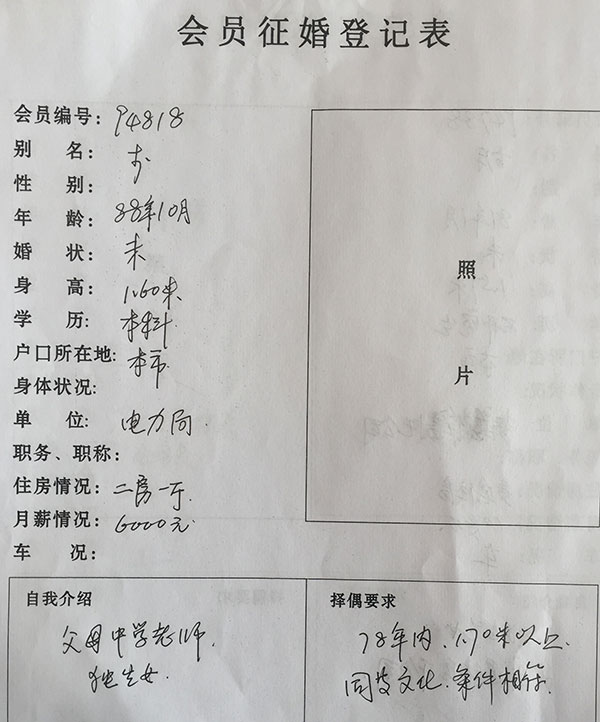 会员征婚登记表
会员编号: 94818
别 名:
性 别:
年 龄: 88年10月
婚 状: 未
身 高: 1.60米
学 历: 本科
户口所在地: 本市
身体状况:
单 位: 电力局
职务、职称:
住房情况: 二房一厅
月薪情况: 6000元
车 况:
照
片
自我介绍
父母中学老师.
独生女.
择偶要求
78年内、1.70米以上.
同等文化.条件相符.